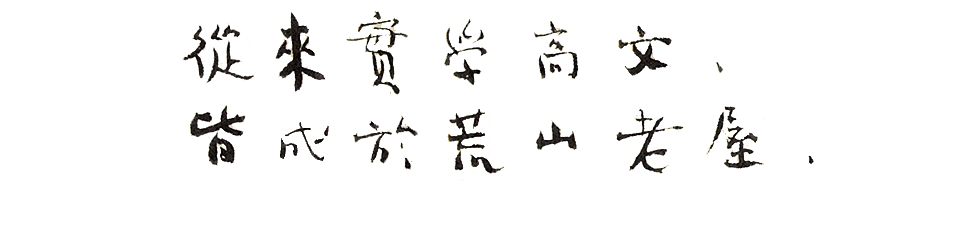 從來實學高文、
皆成於荒山老屋、